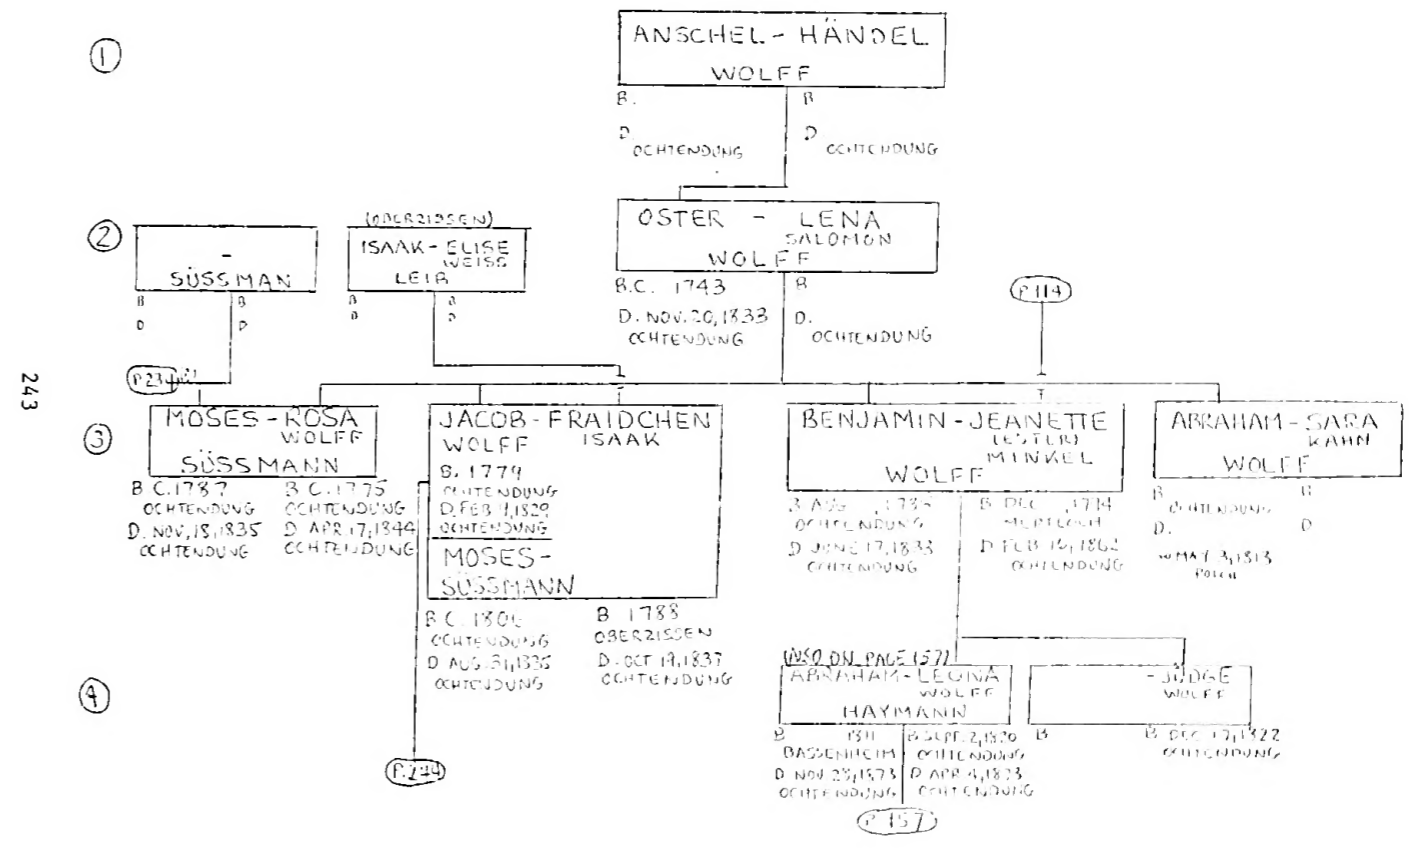 ①
ANSCHEL - HÄNDEL
WOLFF
B.
B
D.
OCHTENDUNG
D
OCHTENDUNG
②
-
SÜSSMAN
B
B
D
D
(OBERZISSEN)
ISAAK - ELISE
WEISS
LEIB
B
B
D
D
OSTER - LENA
SALOMON
WOLFF
B.C. 1743
B
D. NOV. 20, 1833
OCHTENDUNG
D.
OCHTENDUNG
P.114
243
③
MOSES - ROSA
WOLFF
SÜSSMANN
B C. 1787
OCHTENDUNG
D. NOV, 18, 1835
OCHTENDUNG
B C. 1775
OCHTENDUNG
D APR. 17, 1844
OCHTENDUNG
JACOB - FRAIDCHEN
WOLFF
ISAAK
B. 1779
OCHTENDUNG
D. FEB 4, 1829
OCHTENDUNG
MOSES -
SÜSSMANN
B C.
OCHTENDUNG
D AUG. 31, 1835
OCHTENDUNG
B. 1788
OBERZISSEN
D. OCT 19, 1837
OCHTENDUNG
BENJAMIN - JEANETTE
(ESTER)
MINKEL
WOLFF
B AUG
OCHTENDUNG
D JUNE 17, 1833
OCHTENDUNG
B DEC
D FEB
OCHTENDUNG
ABRAHAM - SARA
KAHN
WOLFF
B
OCHTENDUNG
D.
W MAY 3, 1813
POLCH
B
D
④
P.244
(INFO ON PAGE 157)
ABRAHAM - LEONA
WOLFF
HAYMANN
B 1811
BASSENHEIM
D NOV 28, 1873
OCHTENDUNG
B SEPT. 2, 1820
OCHTENDUNG
D APR 4, 1873
OCHTENDUNG
- JUDGE
WOLFF
B
B DEC 17, 1822
OCHTENDUNG
P 157